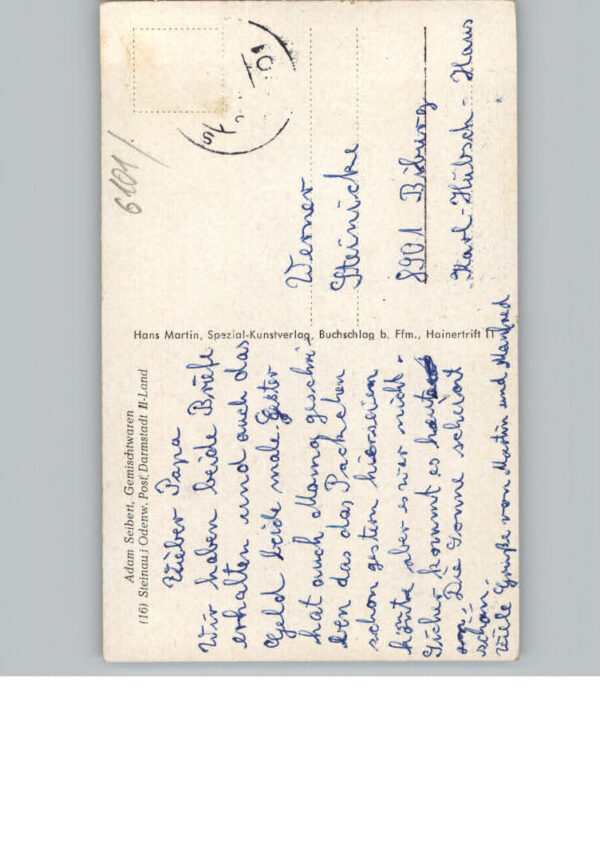 Adam Seibert, Gemischtwaren
(16) Steinau i Odenw. Post Darmstadt II-Land
Lieber Papa
Wir haben beide Briefe
erhalten und auch das
Geld beide male. Gester
hat auch Mamy geschri-
ben das das Packchen
schon gestern hiersein
könnte aber es war nicht.
Sicher kommt es heute
an. Die Sonne scheint
schön.
Viele Grüße von Martin und Manfred
Hans Martin, Spezial-Kunstverlag, Buchschlag b. Ffm., Hainertrift 11
6101/.
Werner
Steinicke
8901 Biburg
Karl-Hübsch-Haus